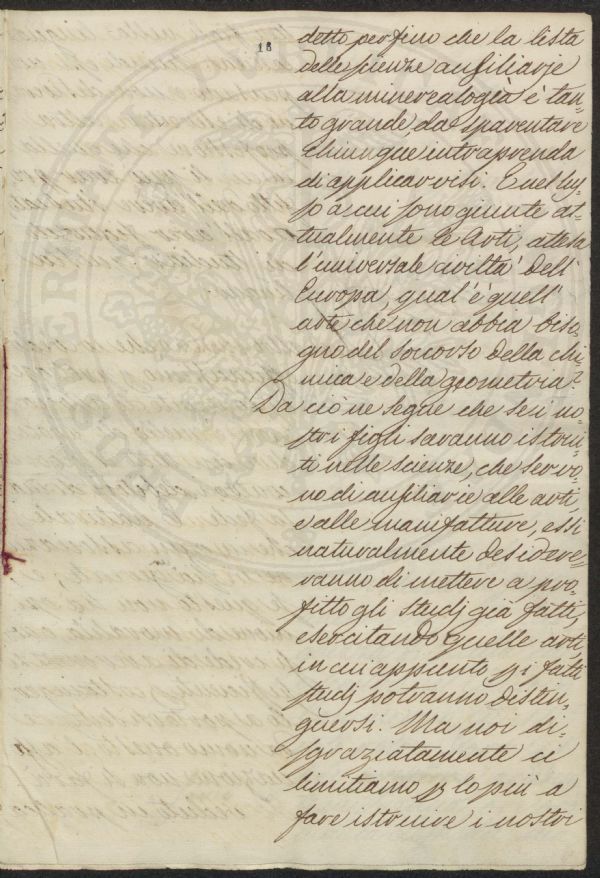 18
detto perfino che la lista
delle scienze ausiliarie
alla minerealogia è tan=
to grande da spaventare
chiunque intraprenda
di applicarvisi. E nel lus=
so a cui sono giunte at=
tualmente le Arti, attesa
l'universale civiltà dell'
Europa, qual'è quell'
arte che non abbia biso=
gno del soccorso della chi=
mica e della geometria?
Da ciò ne segue che se i no=
stri figli saranno istrui=
ti nelle scienze, che servo=
no di ausiliarie alle arti
e alle manifatture, essi
naturalmente desidere=
ranno di mettere a pro=
fitto gli studj già fatti,
esercitando quelle arti
in cui appunto i fatti
studj potranno distin=
guersi. Ma noi di=
sgraziatamente ci
limitiamo lo più a
fare istruire i nostri